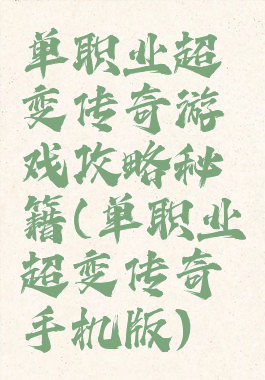 单职业超
变传奇游
戏攻略秘
籍(单职业
超变传奇
手机版)